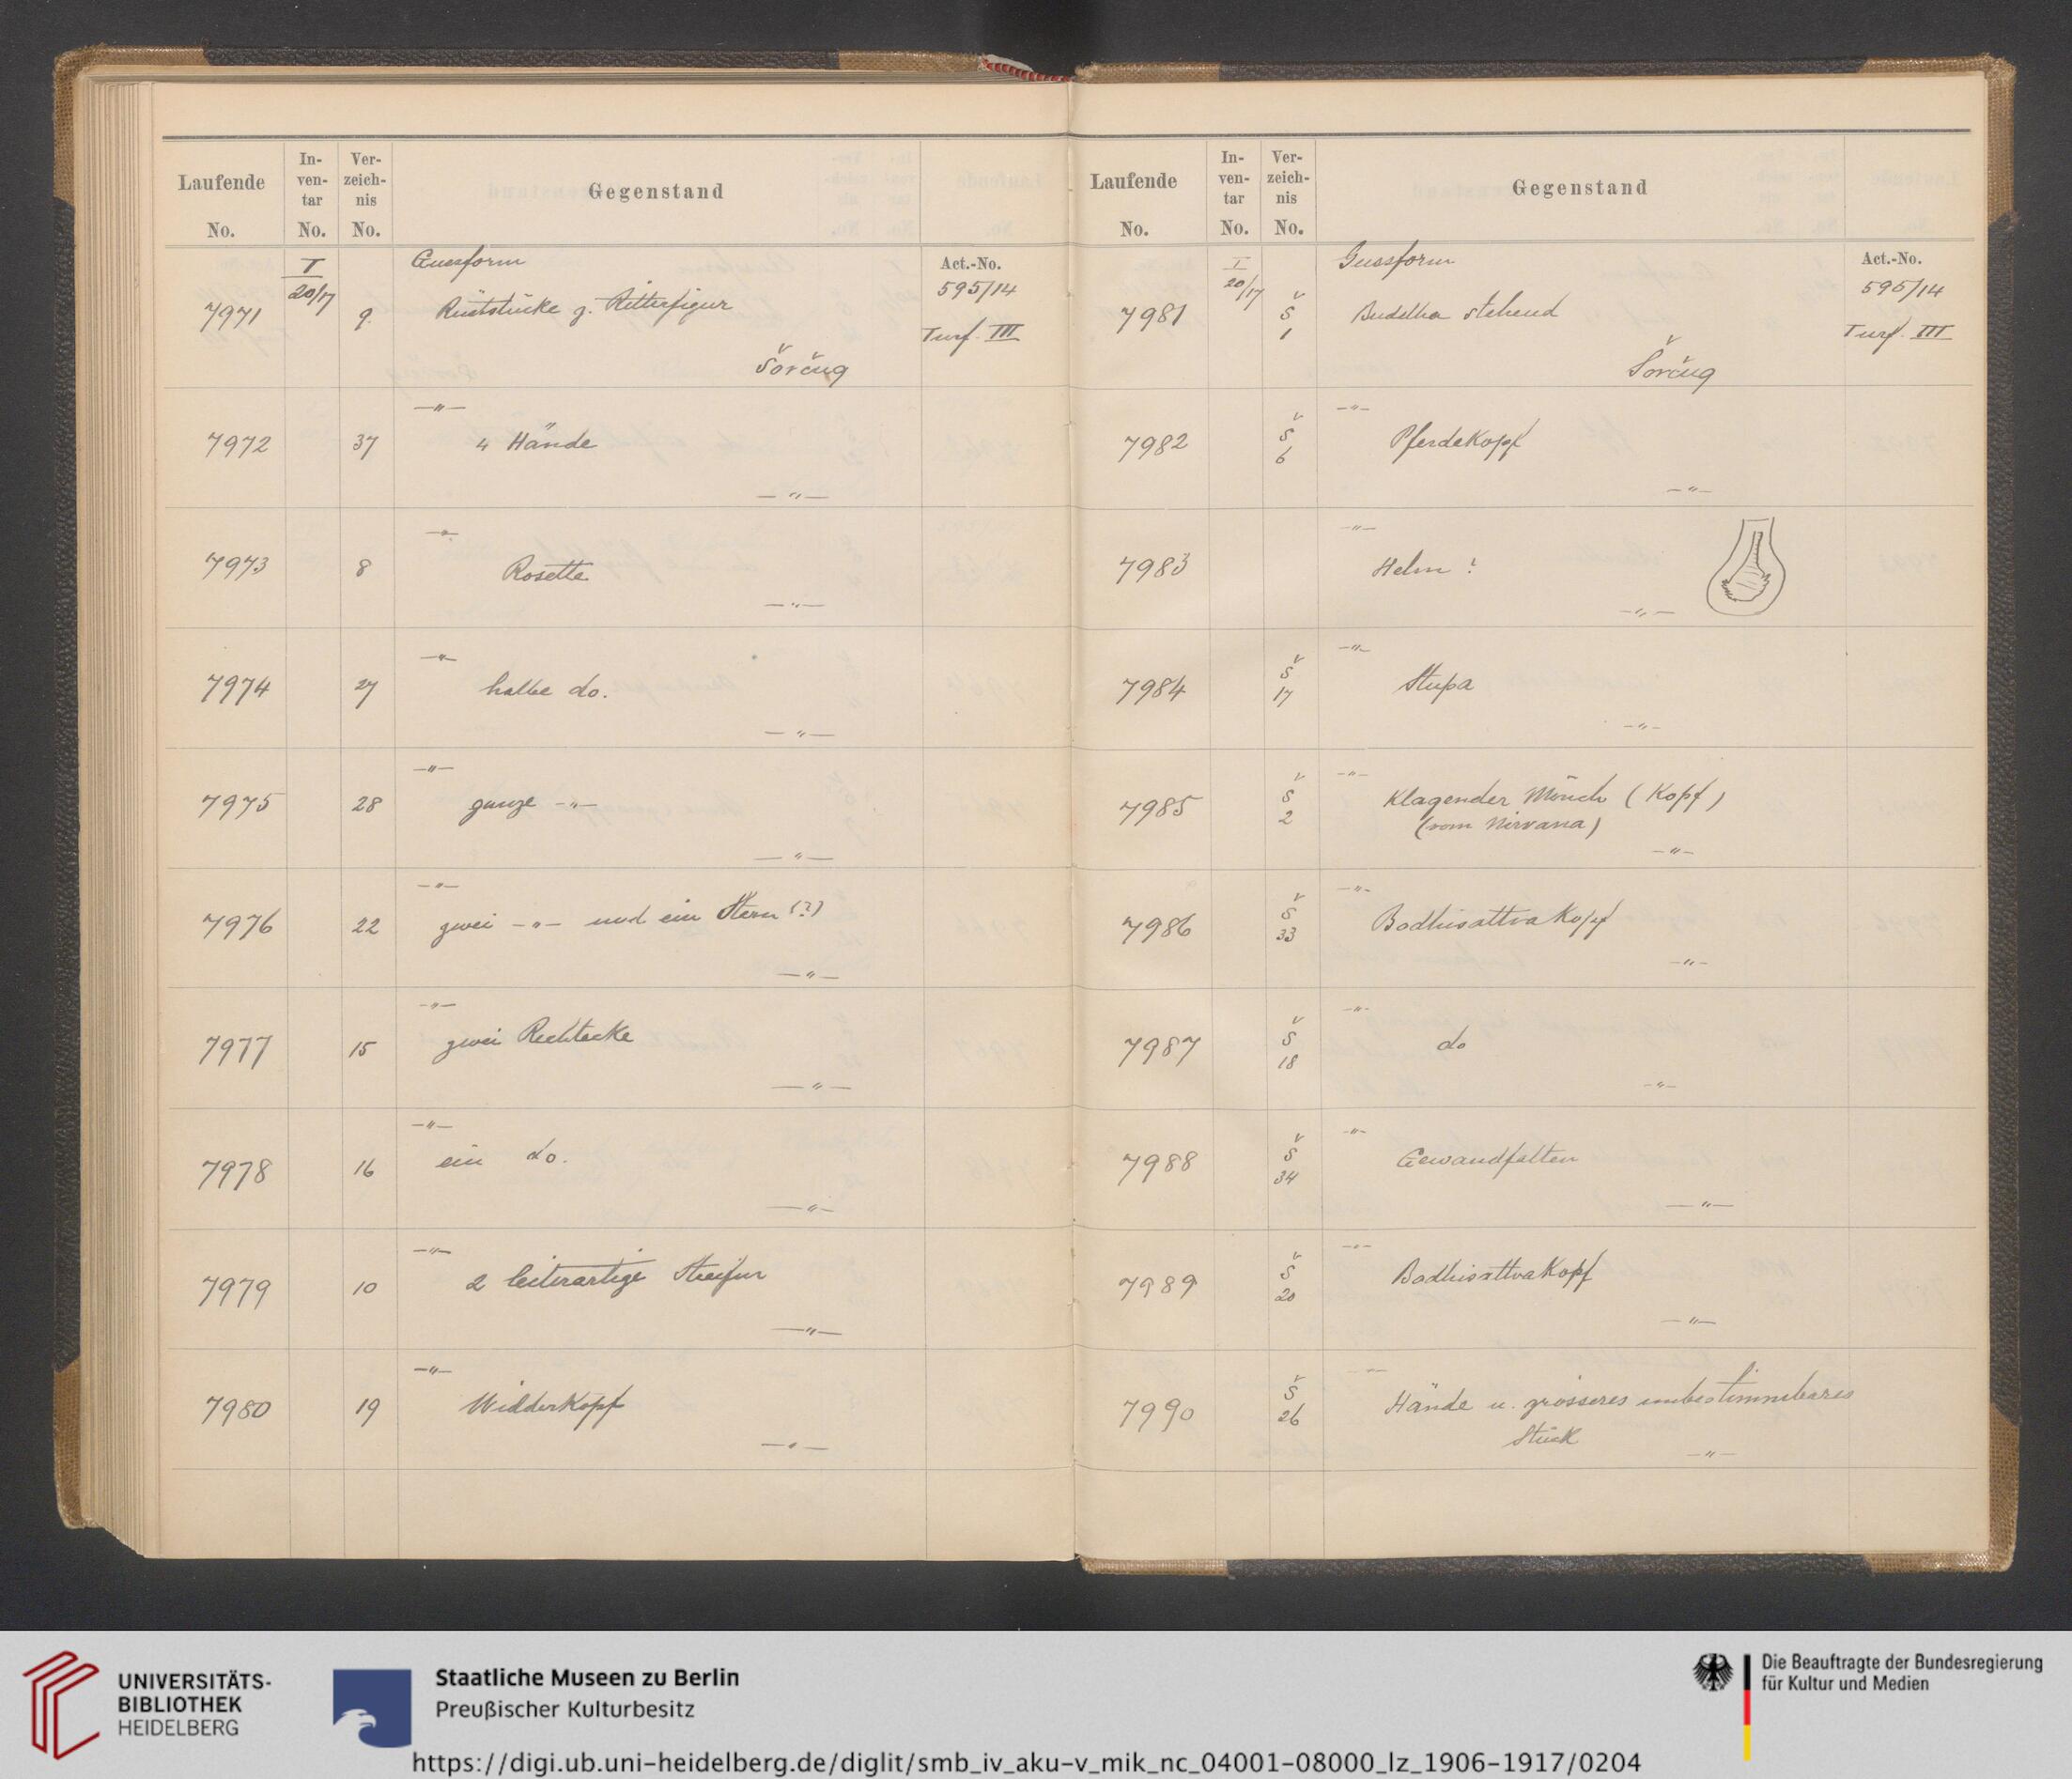 Laufende
No.
In-
ven-
tar
No.
Ver-
zeich-
nis
No.
Gegenstand
I
20/17
Gussform
Act.-No.
595/14
7971
9.
Rüststücke z. Ritterfigur
Turf. III
Šorčuq
—"—
7972
37
4 Hände
—"—
—"—
7973
8
Rosette
—"—
—"—
7974
27
halbe do.
—"—
—"—
7975
28
ganze —"—
—"—
—"—
7976
22
zwei —"— und ein Stern (?)
—"—
—"—
7977
15
zwei Rechtecke
—"—
—"—
7978
16
ein do.
—"—
—"—
7979
10
2 leiterartige Streifen
—"—
—"—
7980
19
Widderkopf
—"—
Laufende
No.
In-
ven-
tar
No.
Ver-
zeich-
nis
No.
Gegenstand
I
20/17
Gussform
Act.-No.
595/14
7981
Š
1
Buddha stehend
Turf. III
Šorčuq
—"—
7982
Š
6
Pferdekopf
—"—
—"—
7983
Helm ?
—"—
—"—
7984
Š
17
Stupa
—"—
—"—
7985
Š
2
Klagender Mönch (Kopf)
(vom Nirvana)
—"—
—"—
7986
Š
33
Bodhisattva Kopf
—"—
—"—
7987
Š
18
do
—"—
—"—
7988
Š
34
Gewandfalten
—"—
—"—
7989
Š
20
Bodhisattva Kopf
—"—
—"—
7990
Š
26
Hände u. grösseres unbestimmbares
Stück
—"—
UNIVERSITÄTS-
BIBLIOTHEK
HEIDELBERG
Staatliche Museen zu Berlin
Preußischer Kulturbesitz
https://digi.ub.uni-heidelberg.de/diglit/smb_iv_aku-v_mik_nc_04001-08000_lz_1906-1917/0204
Die Beauftragte der Bundesregierung
für Kultur und Medien